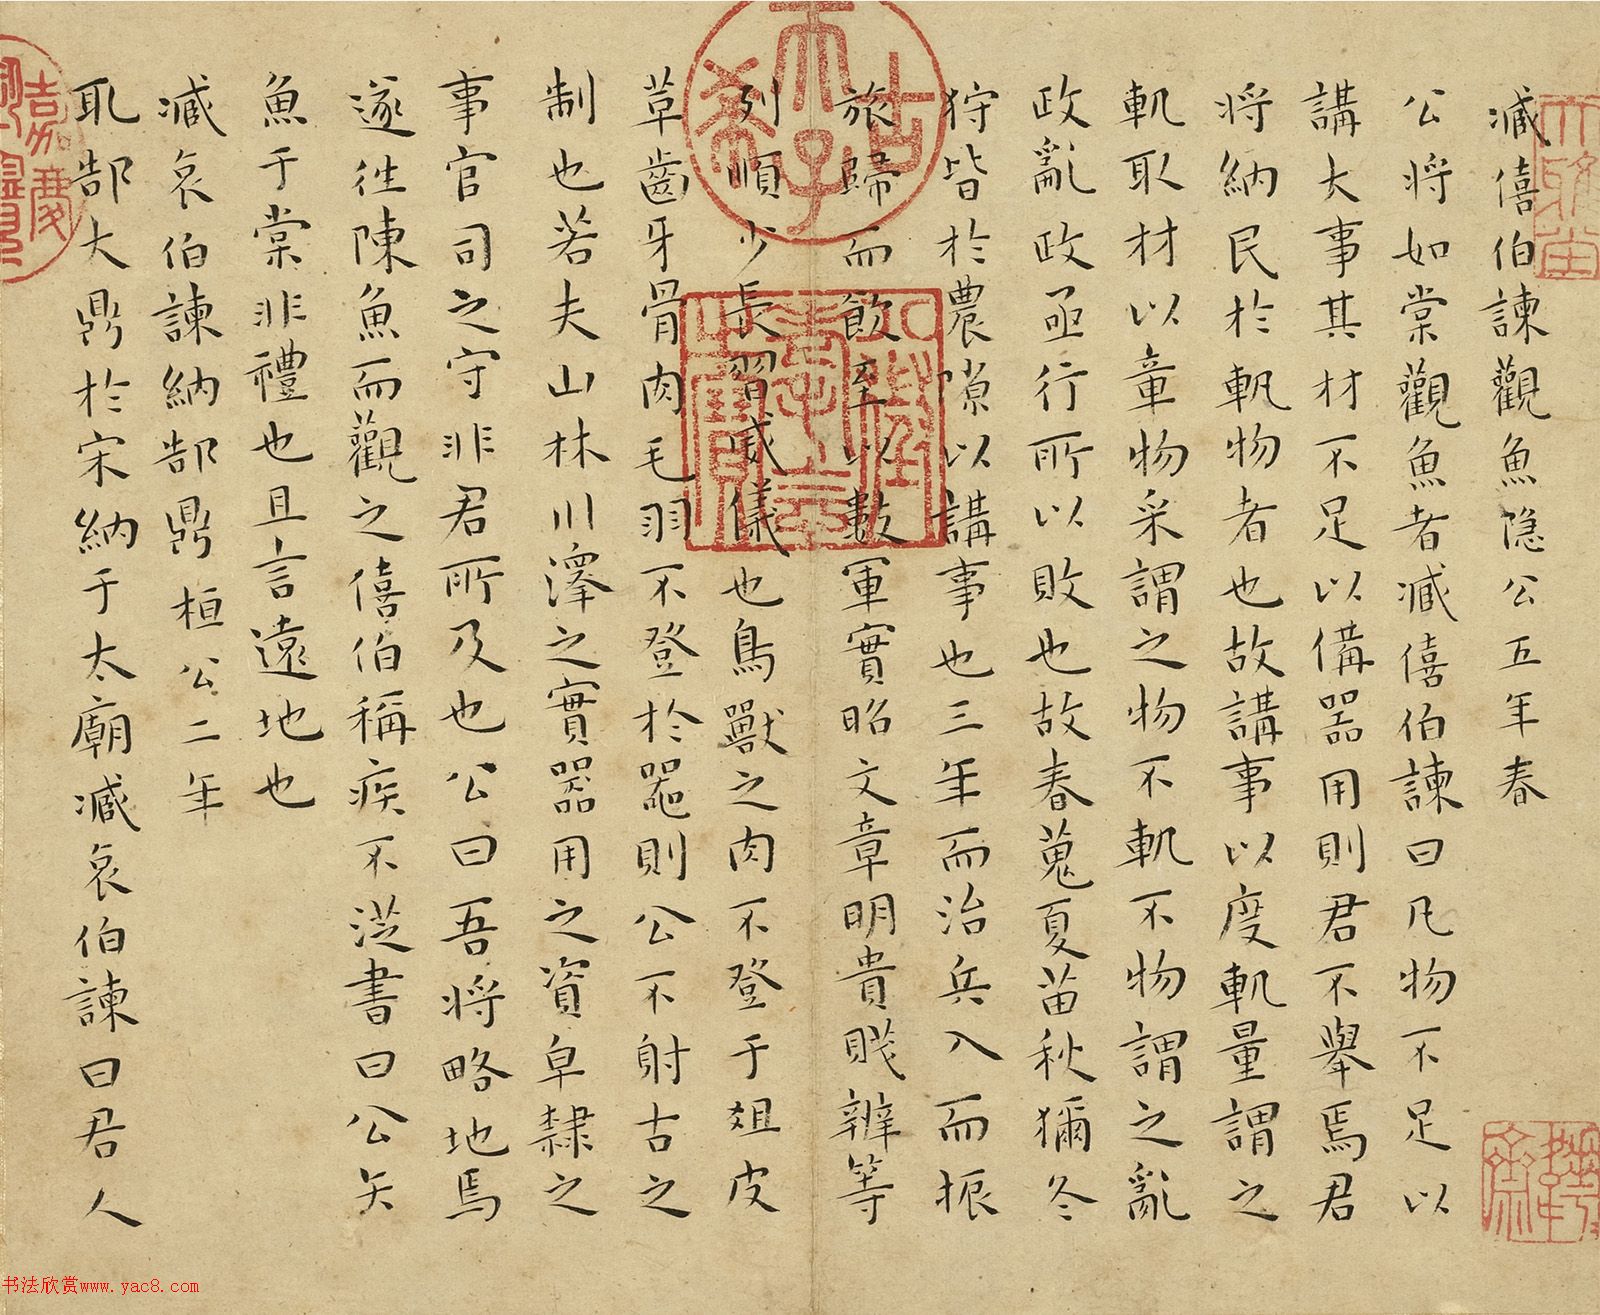 臧僖伯諫觀魚隐公五年春
公將如棠觀魚者臧僖伯諫曰凡物不足以
講大事其材不足以備器用則君不舉焉君
將納民於軌物者也故講事以度軌量謂之
軌取材以章物采謂之物不軌不物謂之亂
政亂政亟行所以敗也故春蒐夏苗秋獮冬
狩皆於農隙以講事也三年而治兵入而振
旅歸而飲至以數軍實昭文章明貴賤辨等
列順少長習威儀也鳥獸之肉不登于俎皮
革齒牙骨肉毛羽不登於器則公不射古之
制也若夫山林川澤之實器用之資皁隸之
事官司之守非君所及也公曰吾將略地焉
遂往陳魚而觀之僖伯稱疾不從書曰公矢
魚于棠非禮也且言遠地也
臧哀伯諫納郜鼎桓公二年
取郜大鼎於宋納于太廟臧哀伯諫曰君人
古希天子
嘉慶
书法欣赏www.yac8.com